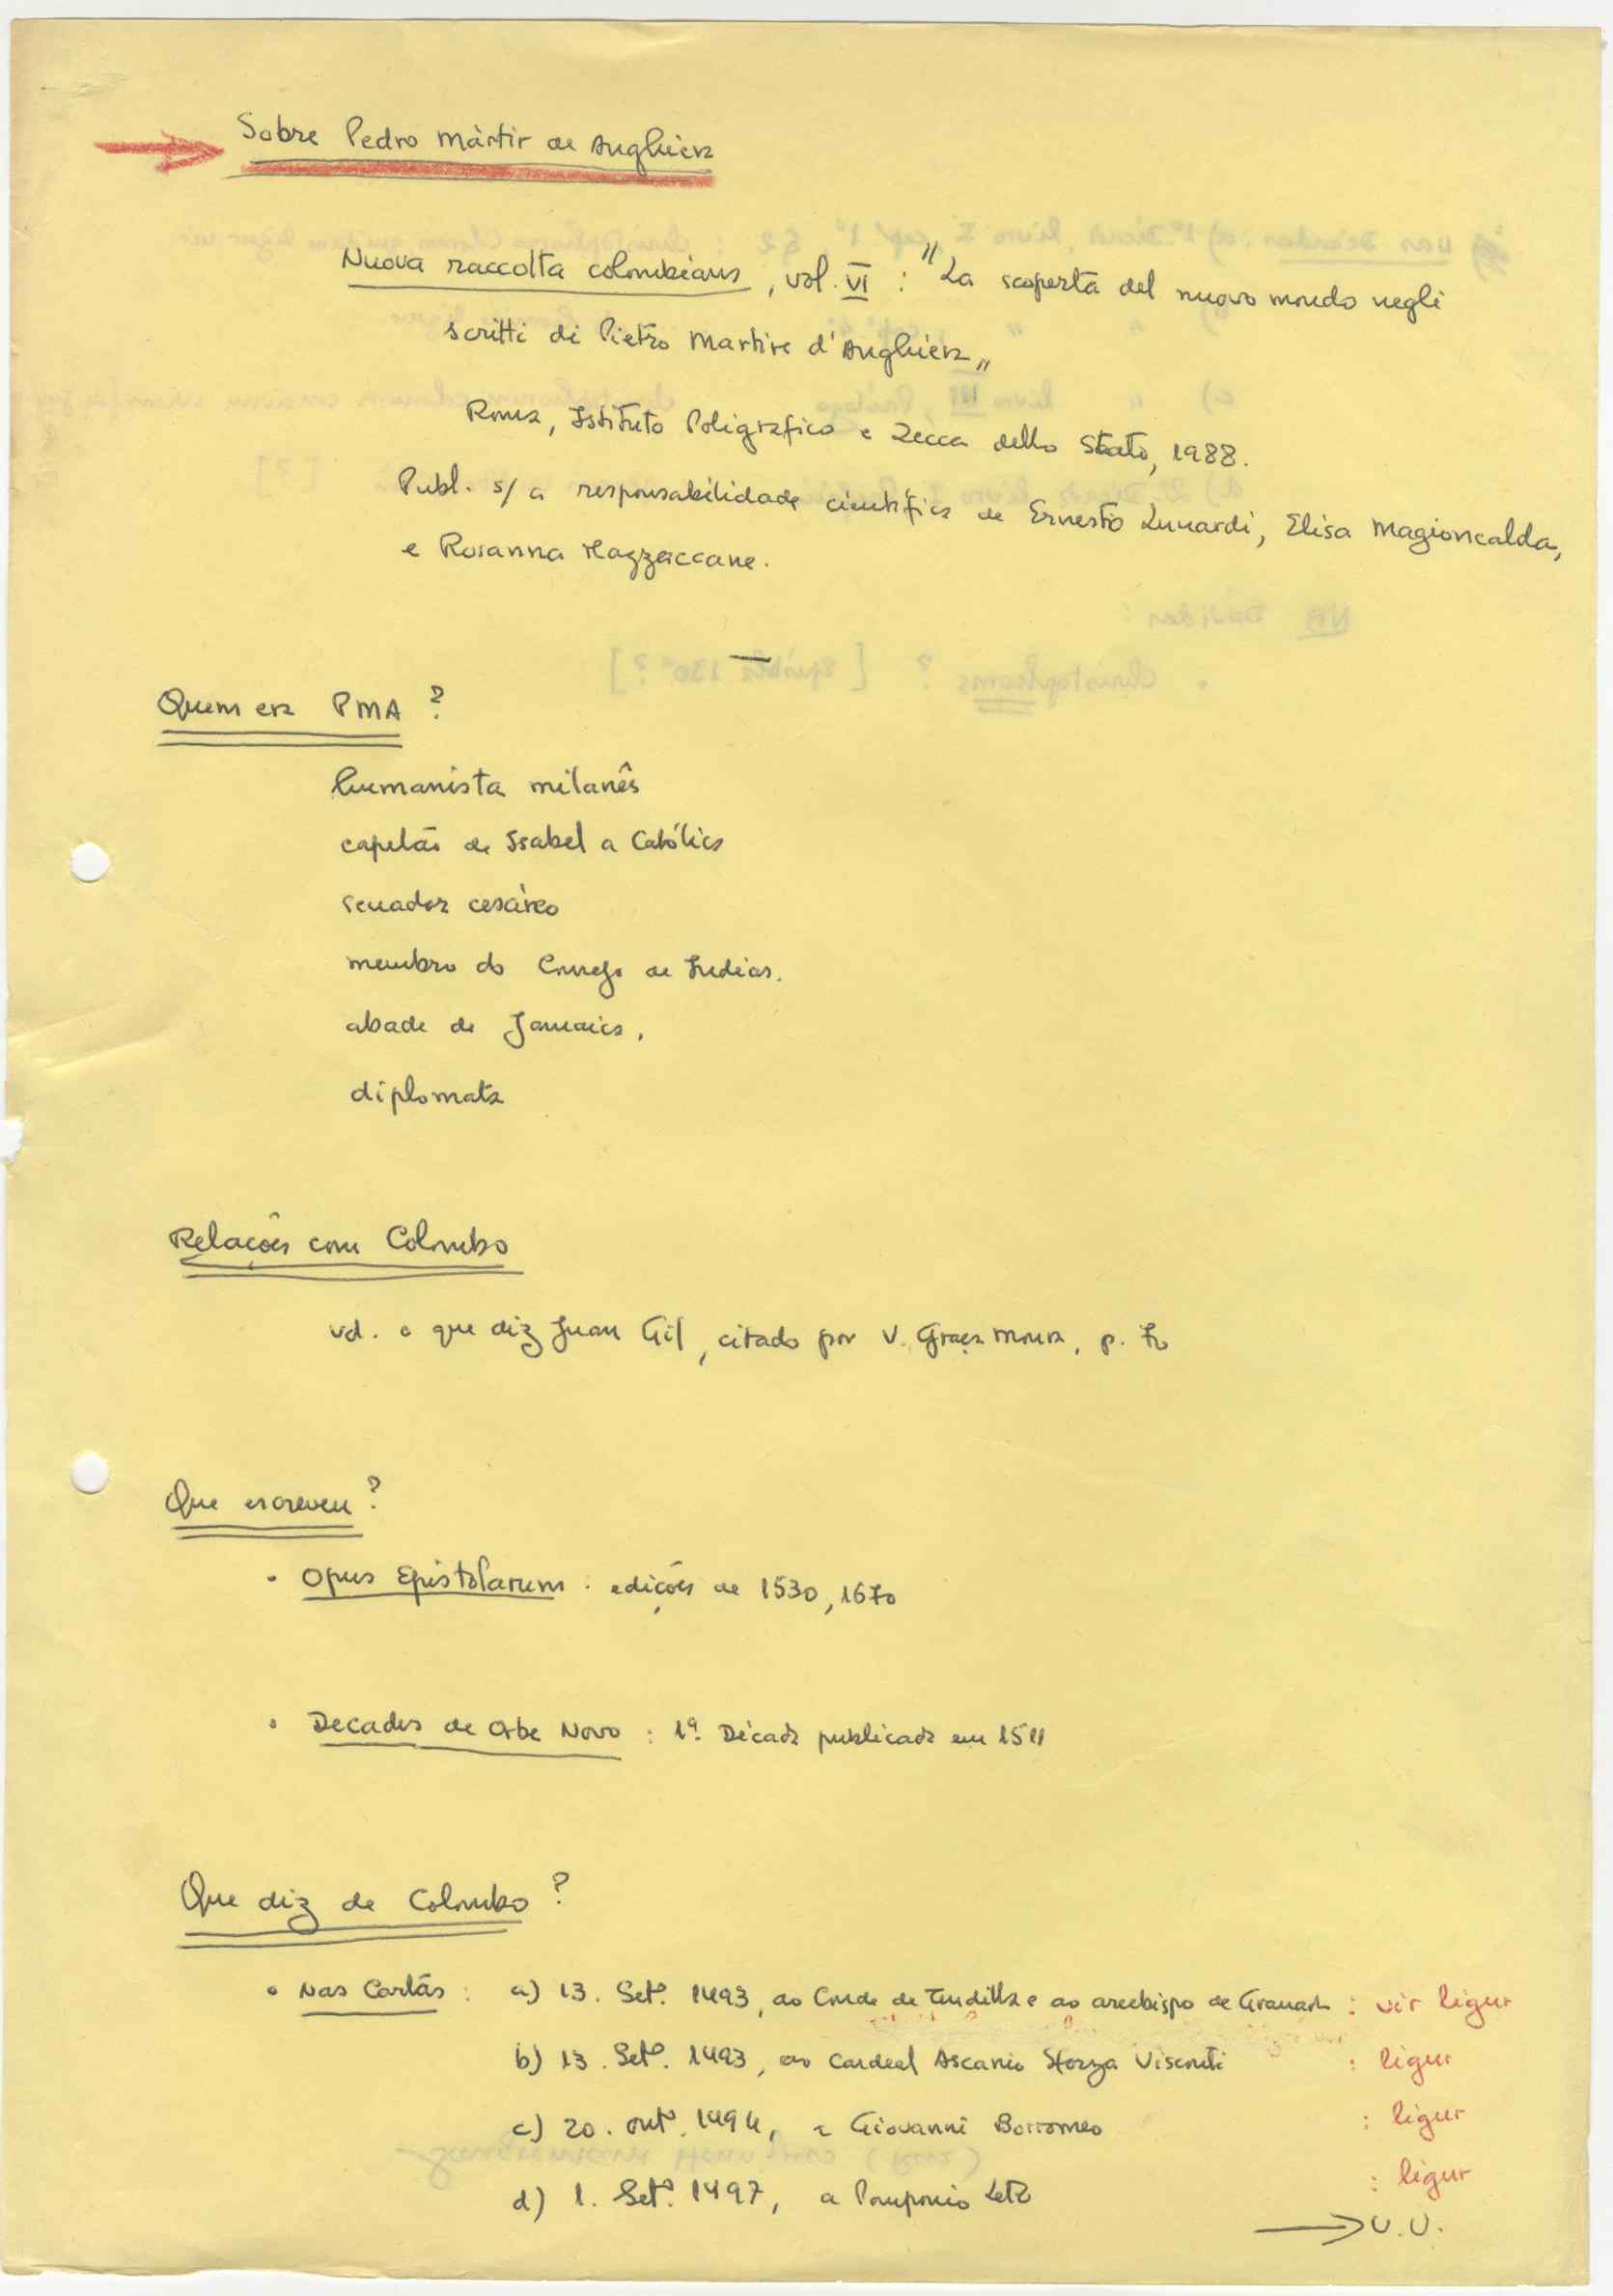 Sobre Pedro Màrtir de Anghiera
Nuova raccolta colombiana, vol. VI : "La scoperta del nuovo mondo negli
scritti di Pietro Martire d'Anghiera"
Roma, Istituto Poligrafico e Zecca dello Stato, 1988.
Publ. s/ a responsabilidade científica de Ernesto Lunardi, Elisa Magioncalda,
e Rosanna Mazzaccane.
Quem era PMA ?
humanista milanês
capelão de Isabel a Católica
senador cesáreo
membro do Consejo de Indias.
abade de Jamaica,
diplomata
Relações com Colombo
vd. o que diz Juan Gil, citado por V. Graça Moura, p. 70
Que escreveu ?
• Opus Epistolarum : edições de 1530, 1670
• Decades de Orbe Novo : 1ª. Década publicada em 1511
Que diz de Colombo ?
• Nas Cartas : a) 13. Setº. 1493, ao Conde de Tendilla e ao arcebispo de Granada : vir ligur
b) 13. Setº. 1493, ao Cardeal Ascanio Sforza Visconti : ligur
c) 20. outº. 1494, a Giovanni Borromeo : ligur
d) 1. Setº. 1497, a Pomponio Leto : ligur
→ V.V.